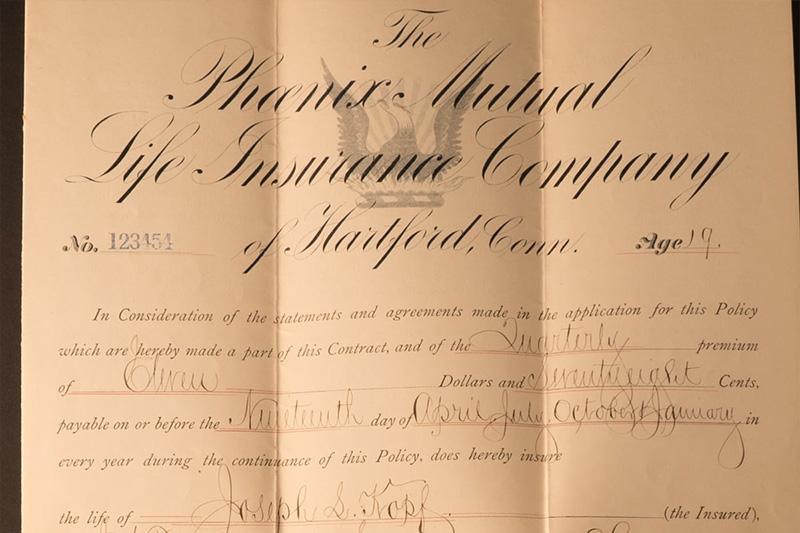 The
Phœnix Mutual
Life Insurance Company
No. 123454 of Hartford, Conn. Age 19.
In Consideration of the statements and agreements made in the application for this Policy
which are hereby made a part of this Contract, and of the Quarterly premium
of Eleven Dollars and Seventyeight Cents,
payable on or before the Nineteenth day of April, July, October & January in
every year during the continuance of this Policy, does hereby insure
the life of Joseph L. Kopf (the Insured),